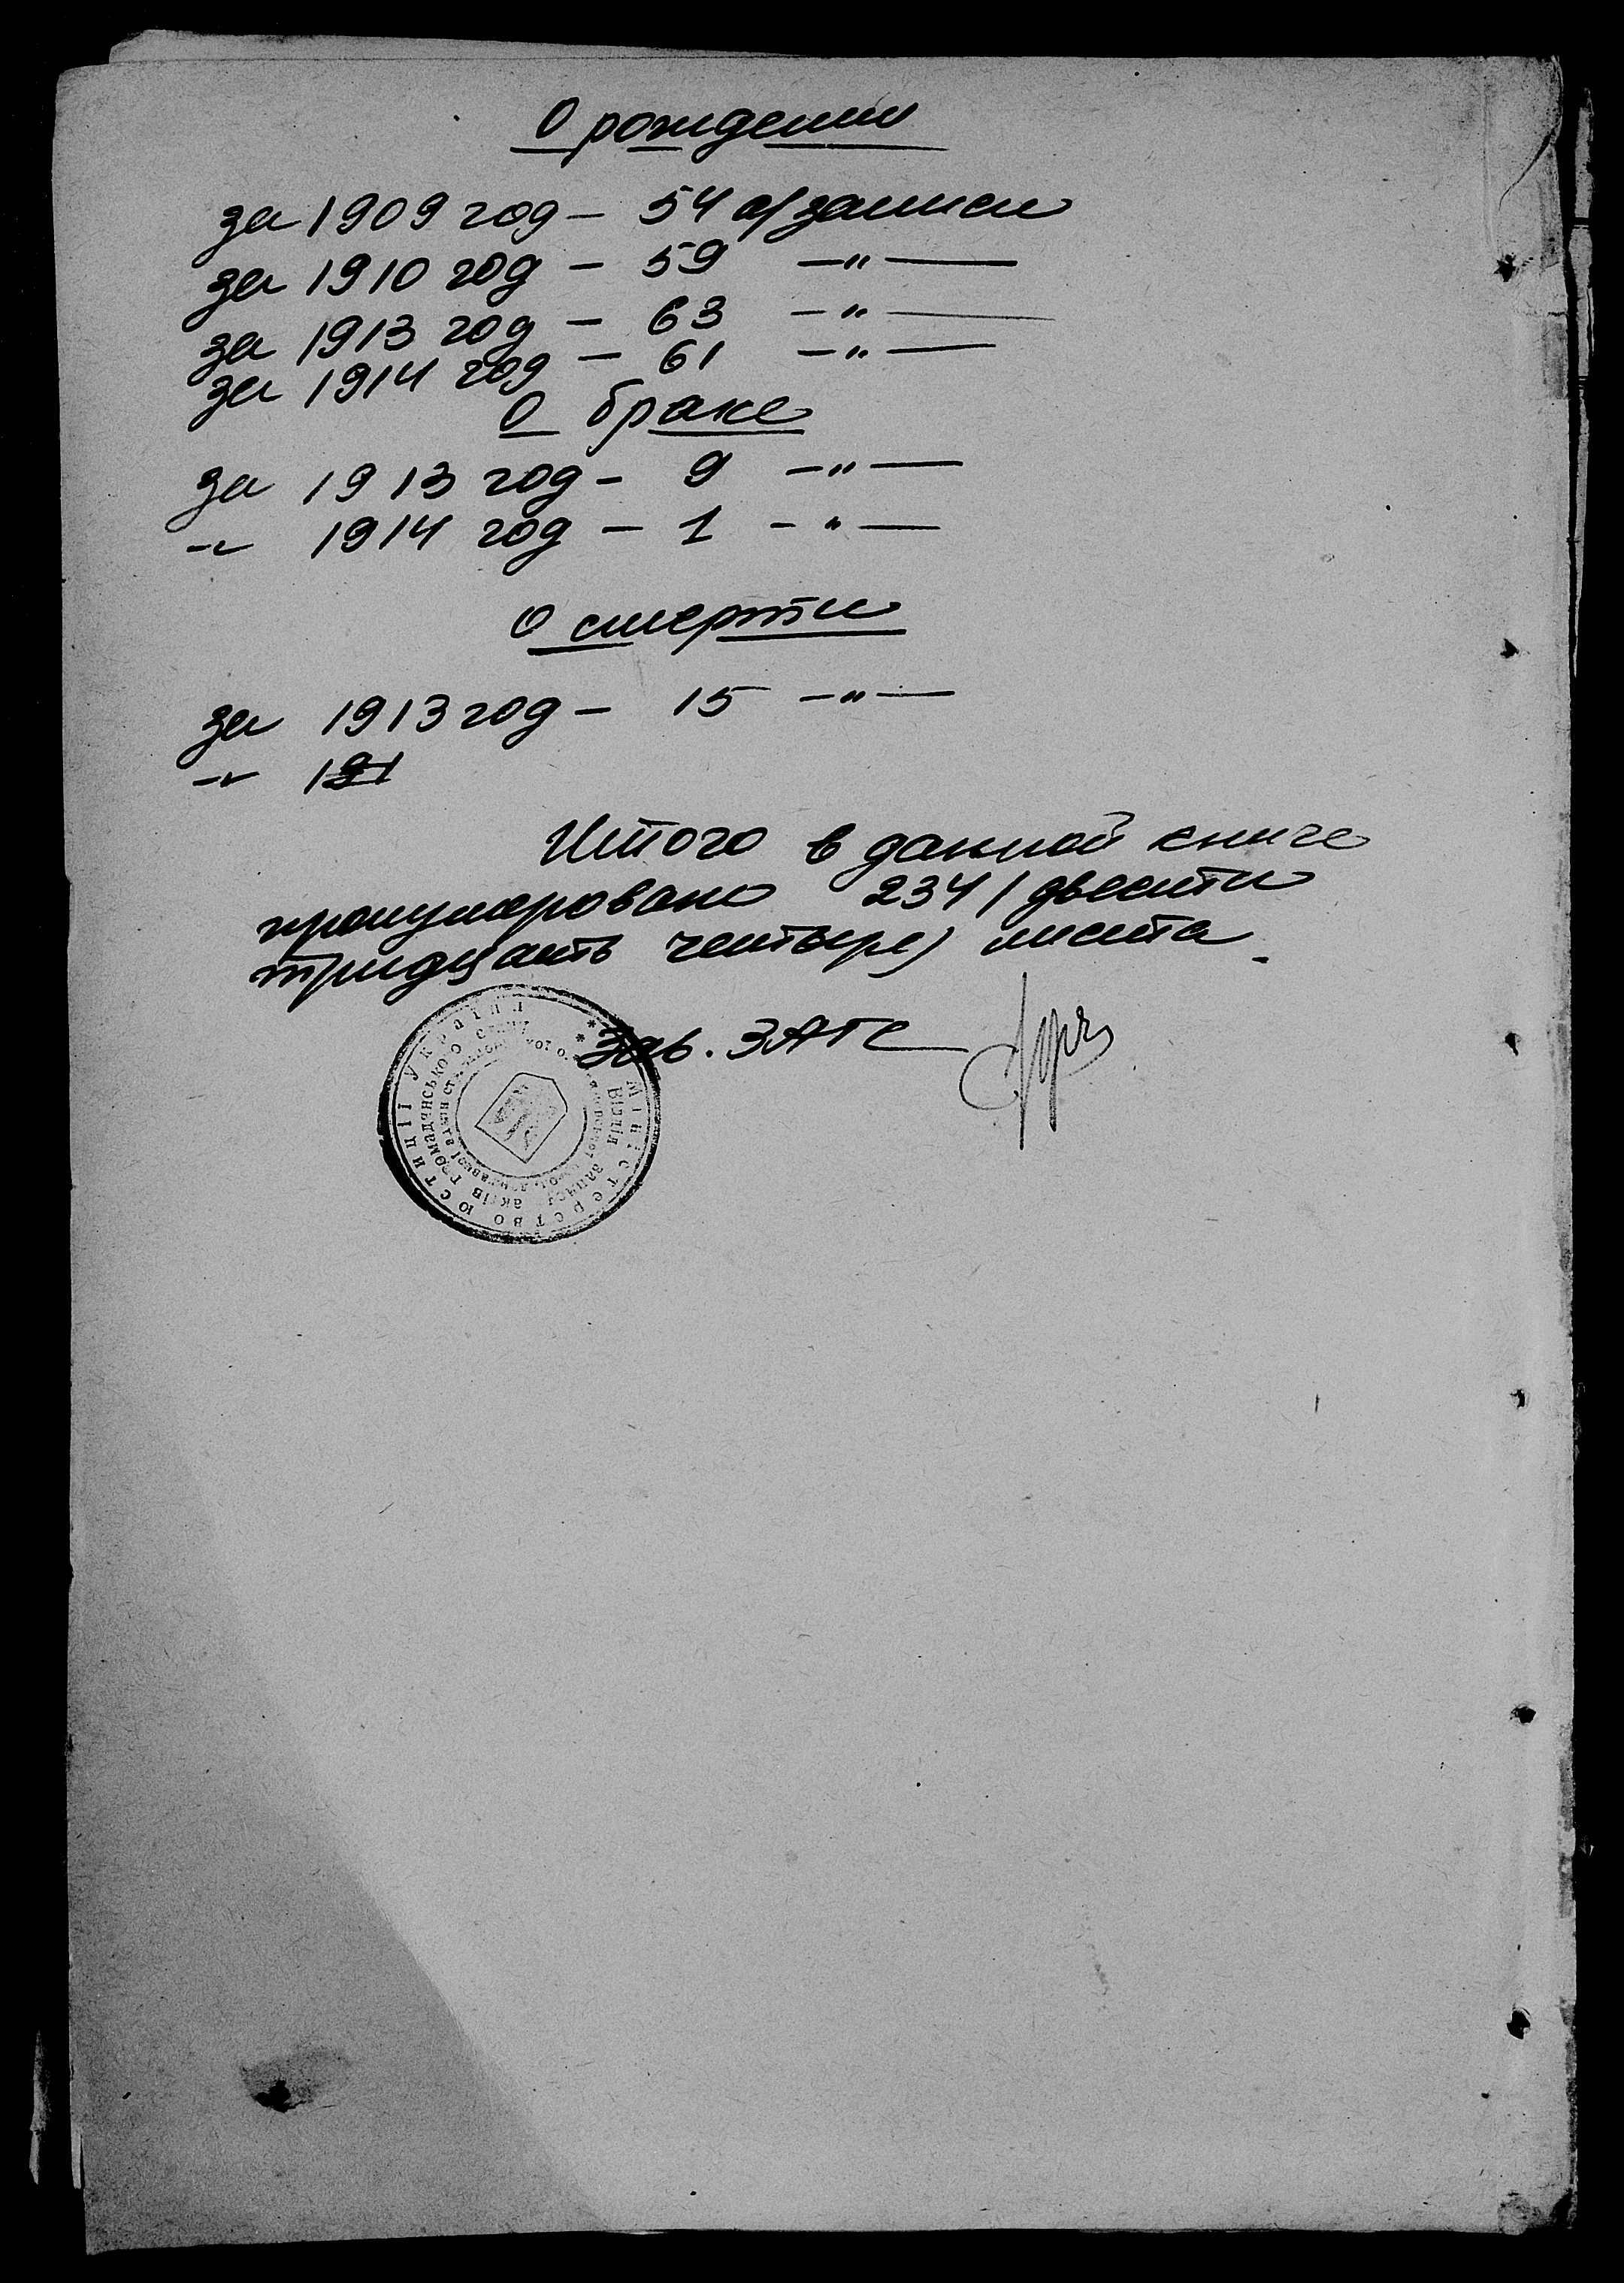 О рождении
за 1909 год - 54 а/записи
за 1910 год - 59 -"-
за 1913 год - 63 -"-
за 1914 год - 61 -"-
О браке
за 1913 год - 9 -"-
-"- 1914 год - 1 -"-
О смерти
за 1913 год - 15 -"-
-"- 191
Итого в данной книге
пронумеровано 234 / двести
тридцать четыре) листа.
Зав. ЗАГС
Міністерство юстиції України
Відділ запису актів громадянського стану